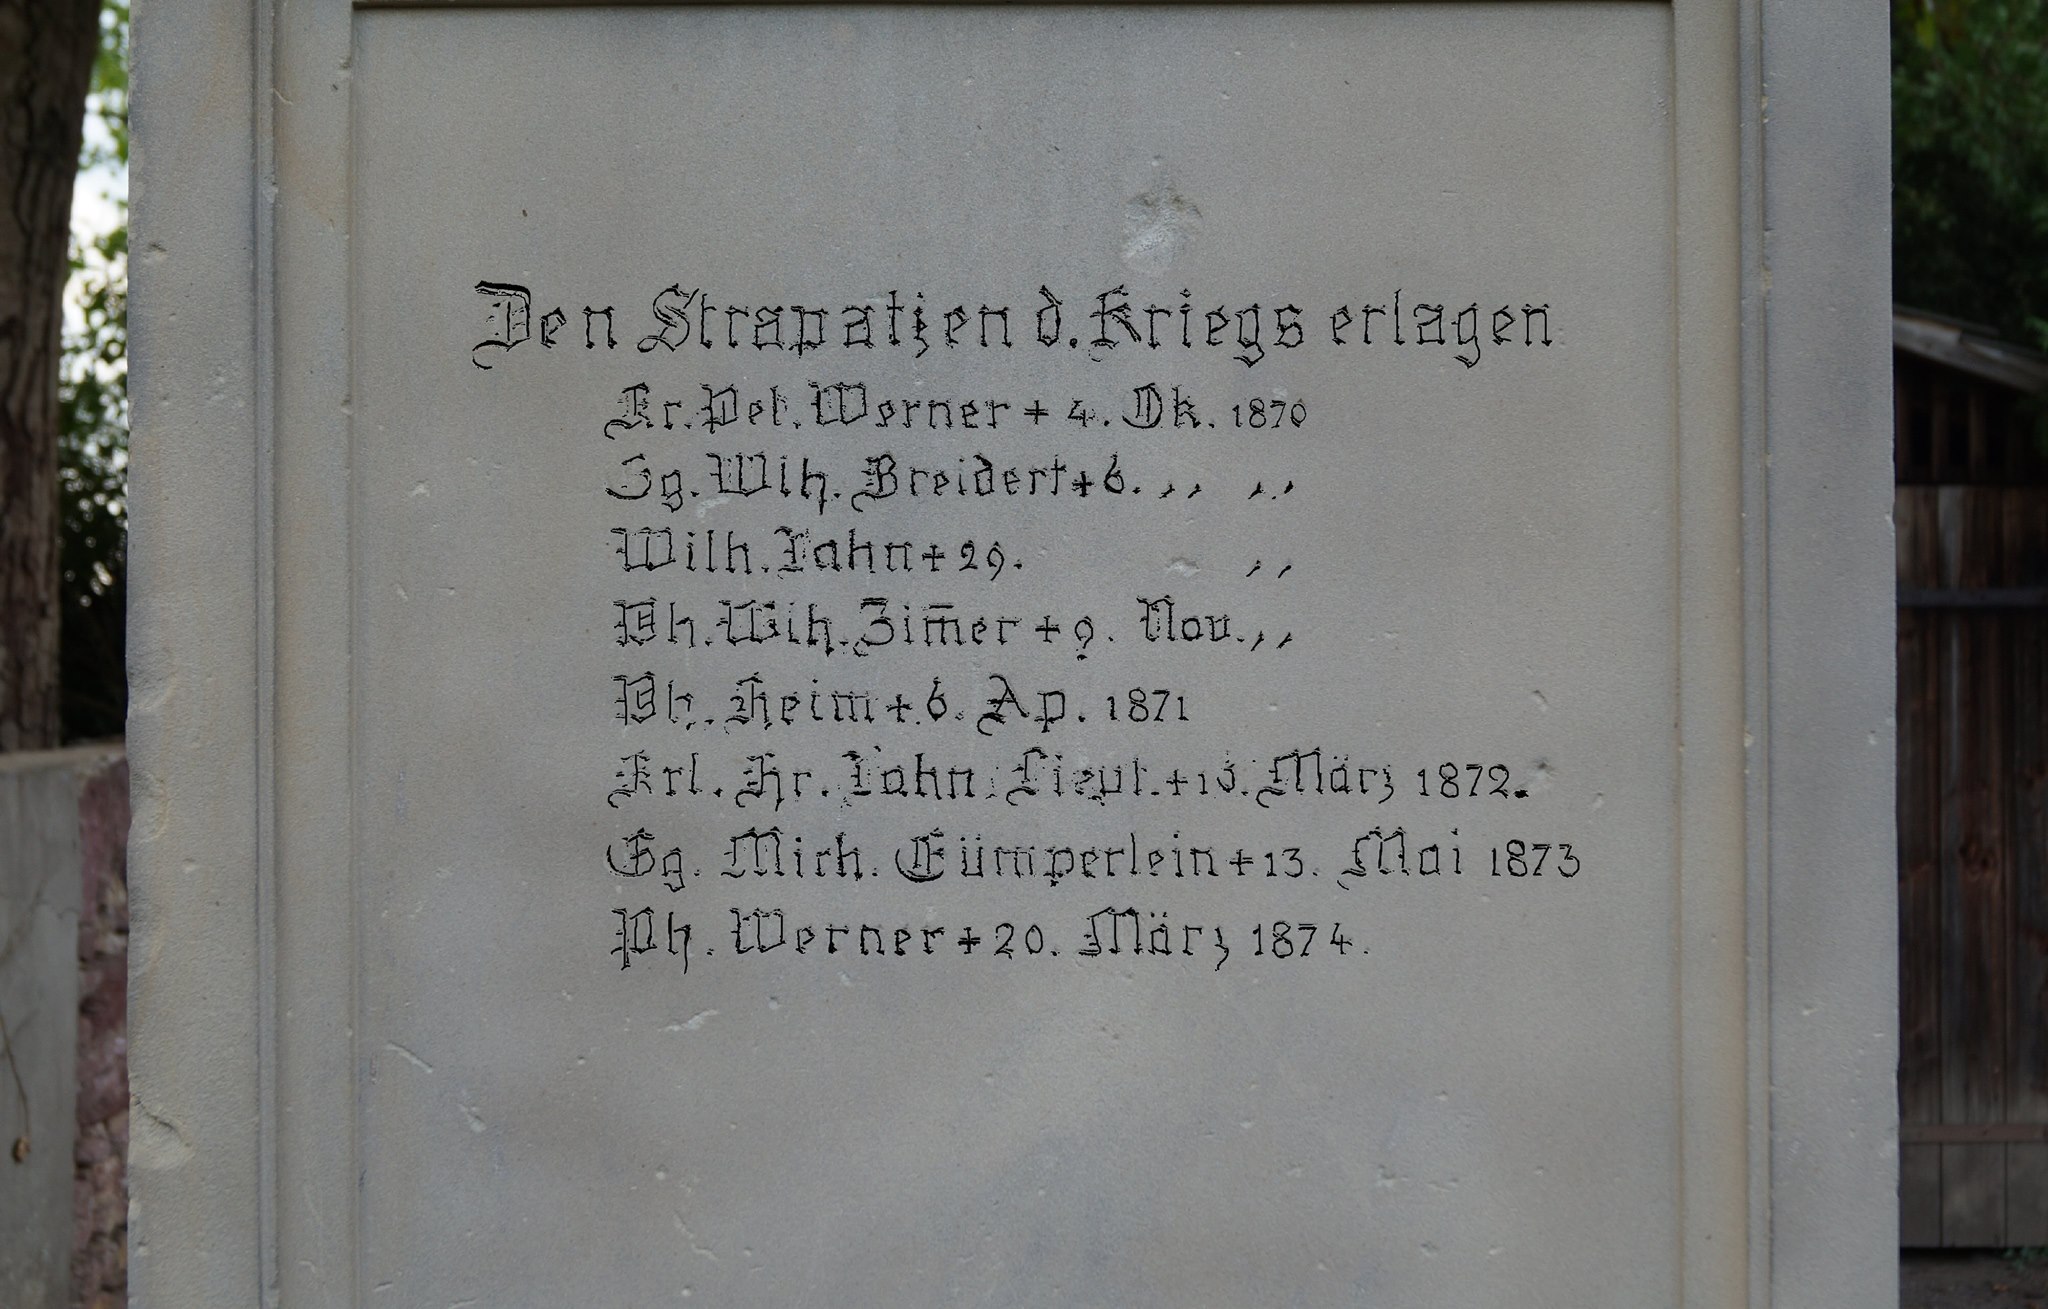 Den Strapatzen d. Kriegs erlagen
Kr. Pet. Werner + 4. Ok. 1870
Gg. Wlh. Breidert + 6. ,, ,,
Wilh. Jahn + 29. ,,
Ph. Wlh. Zim̅er + 9. Nov. ,,
Ph. Heim + 6. Ap. 1871
Krl. Hr. Jahn Lieut. + 13. März 1872.
Gg. Mich. Cümperlein + 13. Mai 1873
Ph. Werner + 20. März 1874.